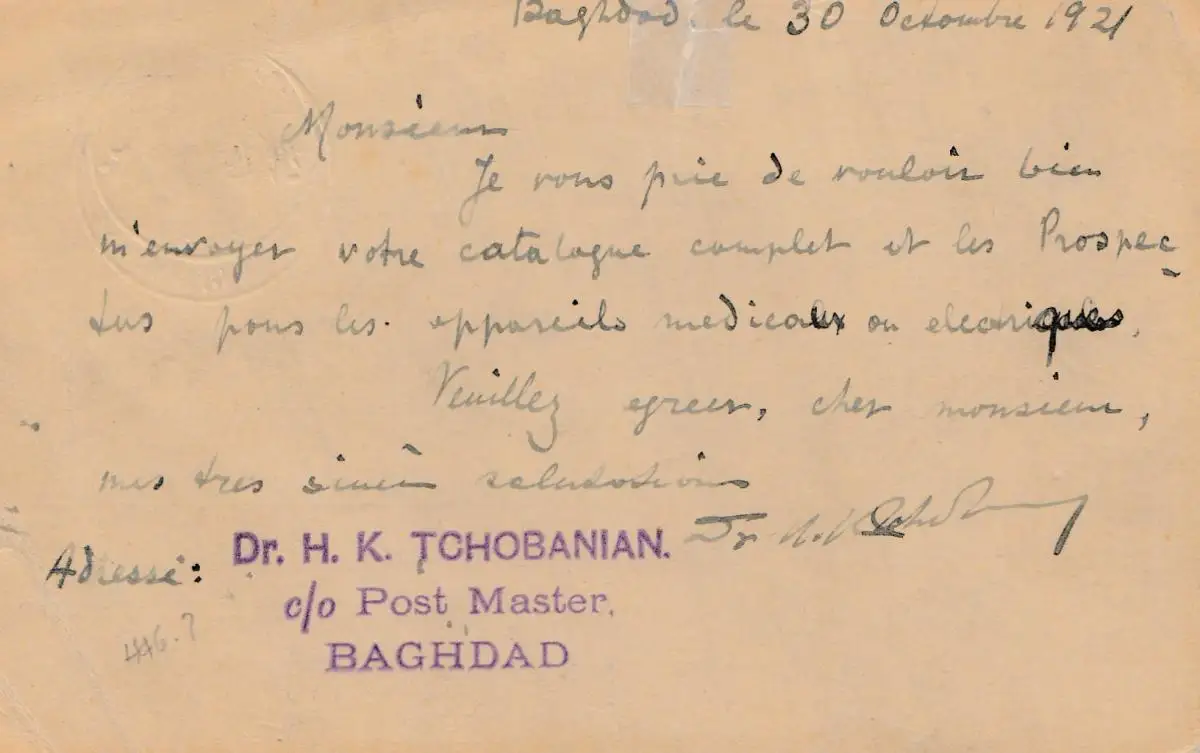 Baghdad. le 30 Octombre 1921
Monsieur
Je vous prie de vouloir bien
m'envoyer votre catalogue complet et les Prospec-
tus pous les appareils medicaux ou electriques.
Veuillez agreer, cher monsieur,
mes tres salutations
Dr H. K.
Adresse:
Dr. H. K. TCHOBANIAN.
c/o Post Master,
BAGHDAD
446.?